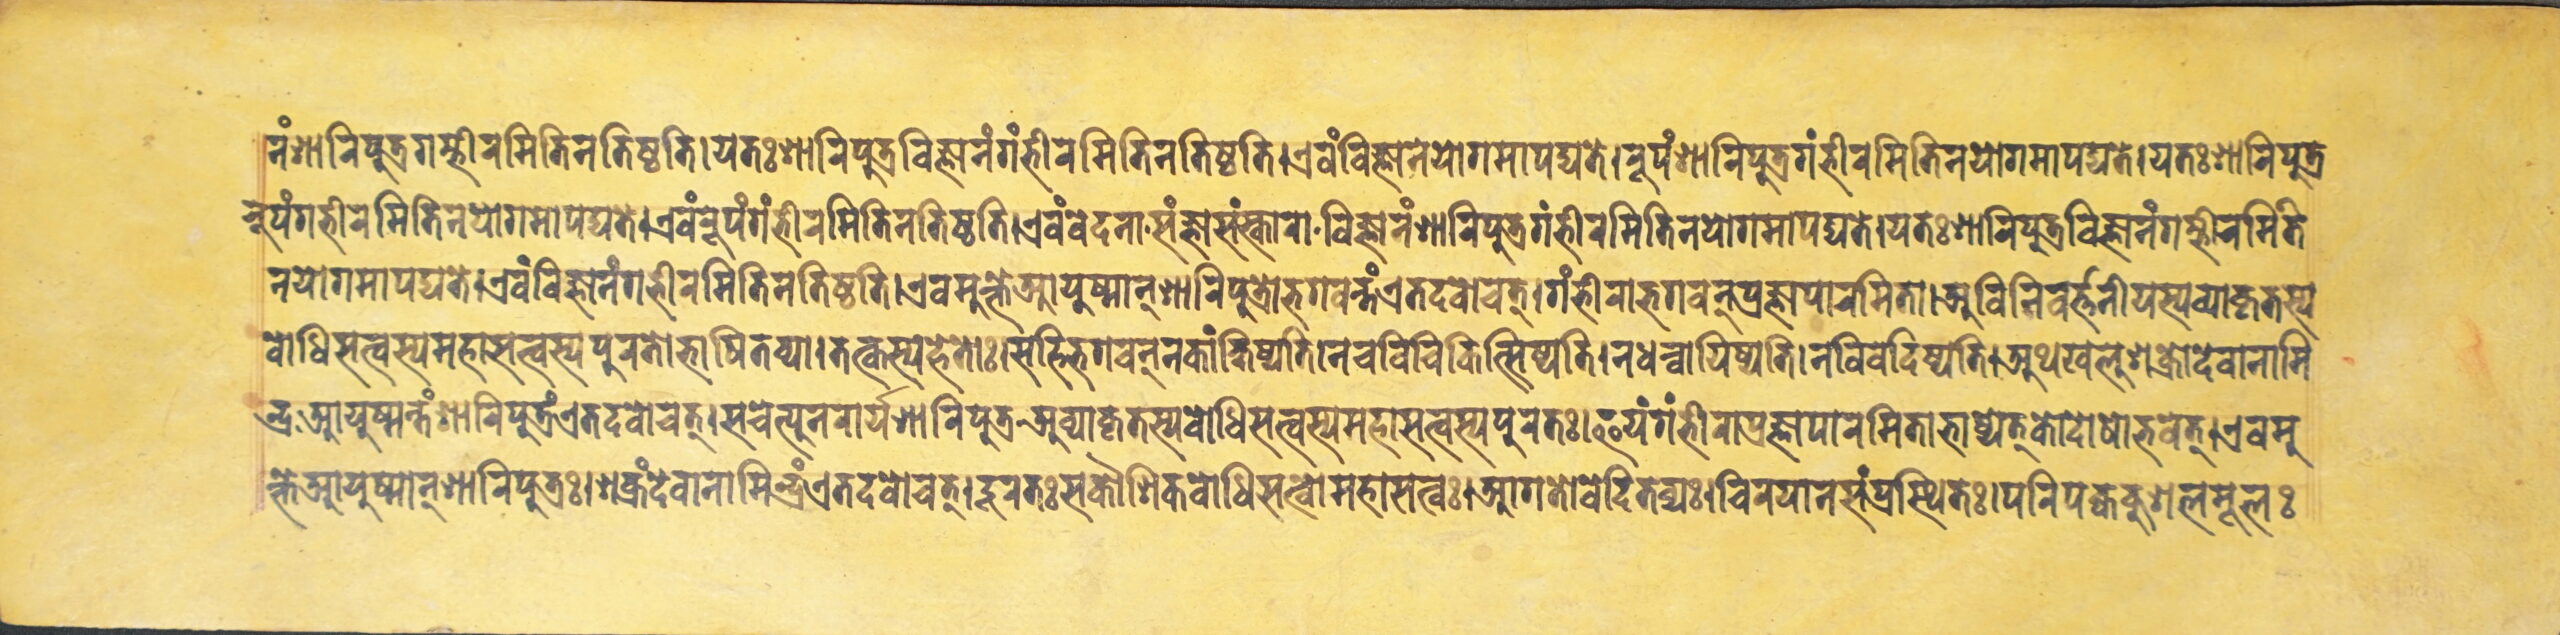 नंशारिपुत्रगम्भीरमितिनतिष्ठति।यतःशारिपुत्रविज्ञानंगंभीरमितिनतिष्ठति।एवंविज्ञानेयोगमापद्यते।रूपंशारिपुत्रगंभीरमितिनयोगमापद्यते।यतःशारिपुत्र
रूपंगभीरमितिनयोगमापद्यते।एवंरूपंगंभीरमितिनतिष्ठति।एवंवेदना॰संज्ञासंस्कारा॰विज्ञानंशारिपुत्रगंभीरमितिनयोगमापद्यते।यतःशारिपुत्रविज्ञानंगम्भीरमिति
नयोगमापद्यते।एवंविज्ञानंगभीरमितिनतिष्ठति।एवमुक्तेआयुष्मान्शारिपुत्रोभगवन्तंएतदवोचत्।गंभीराभगवन्प्रज्ञापारमिता।अविनिवर्त्तनीयस्यव्याकृतस्य
बोधिसत्वस्यमहासत्वस्यपुरतोभाषितव्या।तत्कस्यहेतोः।सहिभगवन्नकांक्षिष्यति।नचविचिकित्सिष्यति।नधन्वायिष्यति।नविवदिष्यति।अथखलुशक्रोदेवानामि
न्द्र॰आयुष्मन्तंशारिपुत्रंएतदवोचत्।सचेत्पुनरार्यशारिपुत्र॰अव्याकृतस्यबोधिसत्वस्यमहासत्वस्यपुरतः।इयंगंभीराप्रज्ञापारमिताभाष्येत्कोदोषोभवेत्।एवमु
क्तेआयुष्मान्शारिपुत्रः।शक्रंदेवानामिन्द्रंएतदवोचत्।दूरतःसकौशिकबोधिसत्वोमहासत्वः।आगतोवेदितव्यः।चिरयानसंप्रस्थितः।परिपक्वकुशलमूलः